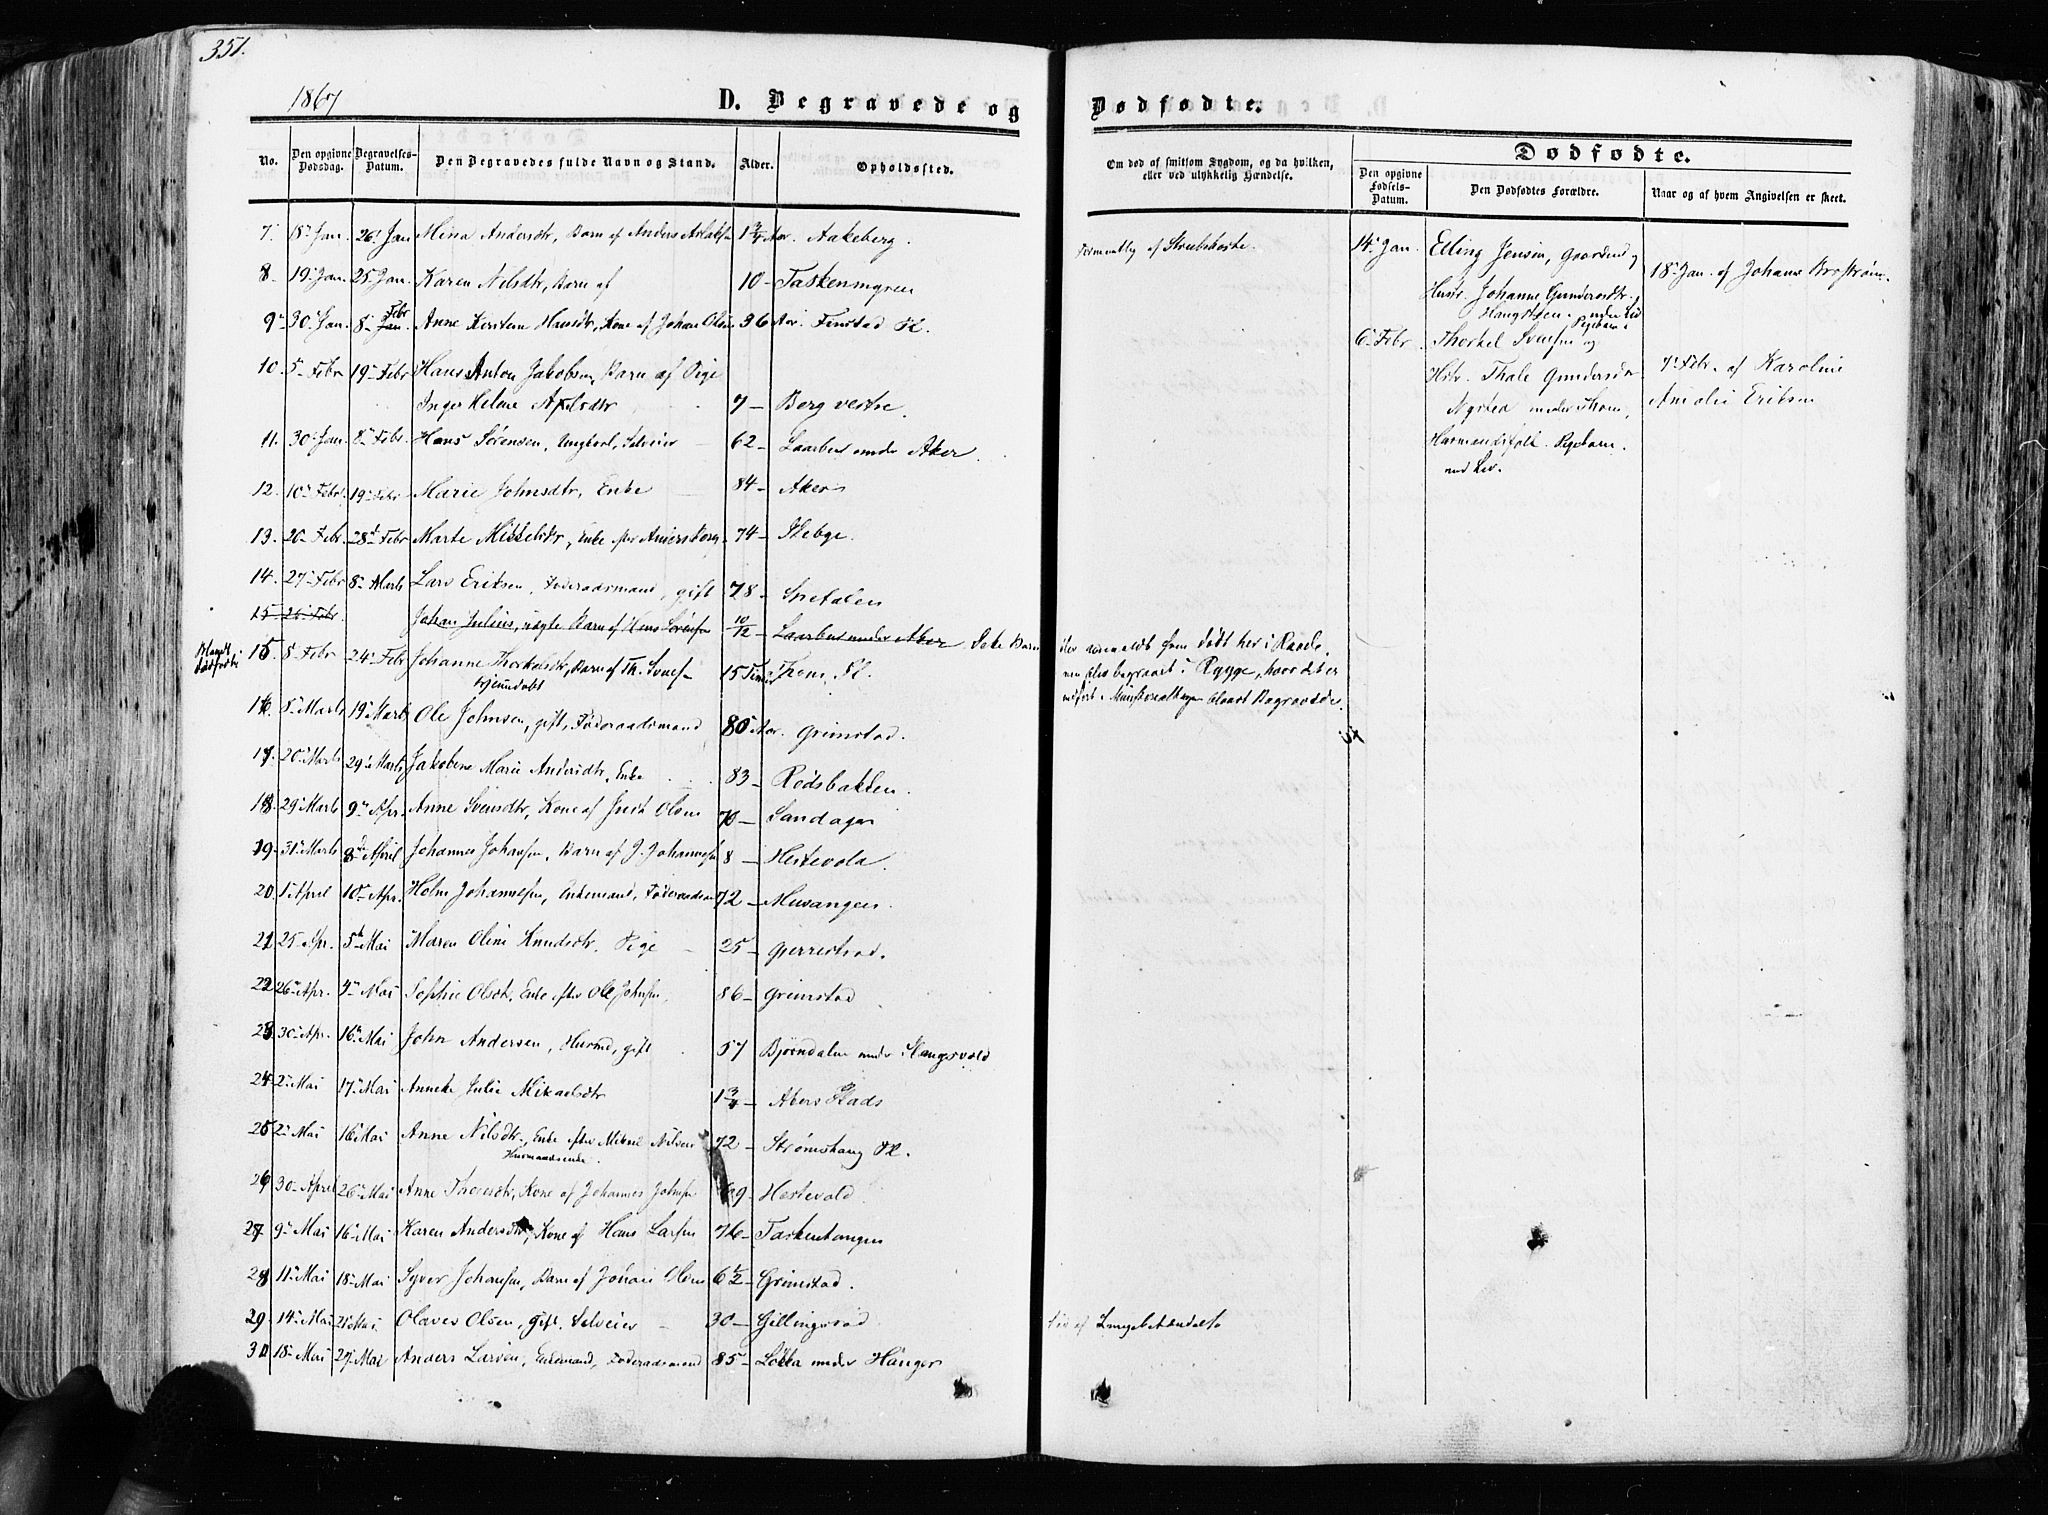 351.
1867
D. Begravede og
No.
Den opgivne Dødsdag.
Begravelses-Datum.
Den Begravedes fulde Navn og Stand.
Alder.
Opholdssted.
7. 18 Jan. 26 Jan Mina Andersdtr, Barn af Anders 1 3/4 Aar. Aakeberg.
8. 19 Jan. 25 Jan. Karen Nilsdtr, Barn af 10 - Taskenmyren
9 30 Jan. 8 Febr Jan. Anne Kerstine Hansdtr, Kone af Johan Olsen 36 Aar. Finstad Pl.
10. 5 Febr 19 Febr Hans Anton Jakobsen, Barn af Pige
Inger Helene Axelsdtr 7 - Berg vestre.
11. 30 Jan. 8 Febr. Hans Sørensen, Ungkarl, Selveier 62 - Laarbec under Aker.
12. 10 Febr. 19 Febr Marie Johnsdtr, Enke 84 - Aker
13. 20 Febr. 28 Febr Marte Mikkelsdtr, Enke efter Anders Borg 74 -
14. 27 Febr 8 Marts Lars Eriksen, Føderaadsmand, gift 78 - Sretalen
15 26 Febr. Johan Julius, uægte Barn af Hans Sørensen 10/12 Laarbec under Aker Dette Barn
Blandt dødfødte
15 8 Febr 24 Febr Johanne Thorkelsdtr, Barn af Th. Svensen 15 Timer Thom Pl.
hjemmedøbt
16. 8 Marts 19 Marts Ole Johnsen, gift, Føderaadsmand 80 Aar. Grimstad.
17. 20 Marts 29 Marts Jakobine Marie Andersdtr, Enke 83 - Rødsbakken.
18. 29 Marts 9 Apr. Anne Svensdtr, Kone af Fredr Olsen 70 - Sandager
19. 31 Marts 8 April Johannes Johansen, Barn af J. Johannesen 8 - Hestevold.
20 1 April 10 Apr. Holm Johannesen, Enkemand, Føderaadsm 72 - Musangen.
21 25 Apr. 5 Mai Maren Oline Knudsdtr, Pige 25 - Gjerrestad.
22 26 Apr. 4 Mai Sophie Olsdtr, Enke efter Ole Johnsen, 86 - Grimstad
23 30 Apr. 16 Mai John Andersen, Husmd, gift 57 Bjørndalen under Haugsvold
24 2 Mai 17 Mai Anneke Julie Mikaelsdtr 1 3/4 - Akers Plads
25 2 Mai 16 Mai Anne Nilsdtr, Enke efter Mikael Nilsen 72 - Strømshaug Pl.
Husmandsenke.
26 30 April 26 Mai Anne Thoresdtr, Kone af Johannes Johnsen 69 - Hestevold
27 9 Mai 16 Mai Karen Andersdtr, Kone af Hans Larsen 76 - Taskentangen
28 11 Mai 18 Mai Syver Johansen, Barn af Johan Olsen 6 1/2 - Grimstad.
29. 14 Mai 21 Mai Olaves Olsen, Gift, Selveier 30 - Gillingsrød
30 18 Mai 27 Mai Anders Larsen, Enkemand, Føderaadsmand 85 - Løkka under Hanger
Dødfødte.
Om død af smitsom Sygdom, og da hvilken, eller ved ulykkelig Hændelse.
Dødfødte.
Den opgivne Fødsels-Datum.
Den Dødfødtes Forældre.
Naar og af hvem Angivelsen er skeet.
Formentlig af Strubehoste.
er anmeldt som dødt her i Raade,
men blev begravet i Rygge, hvor det er
indført i Ministerialbogen blandt Begravede.
død af Lungebetændelse
14 Jan. Elling Jensen, Gaardmd og
Hustr. Johanne Gundersdtr.
Haugsten. under Lid
Pigebarn
18 Jan. af Johanne Borstrøm
6 Febr. Thorkel Svensen og
Hstr. Thale Gundersdtr
Nysted under Thom,
Husmandsfolk. Pigebarn.
med Liv.
7 Febr. af Karoline
Amalie Eriksen